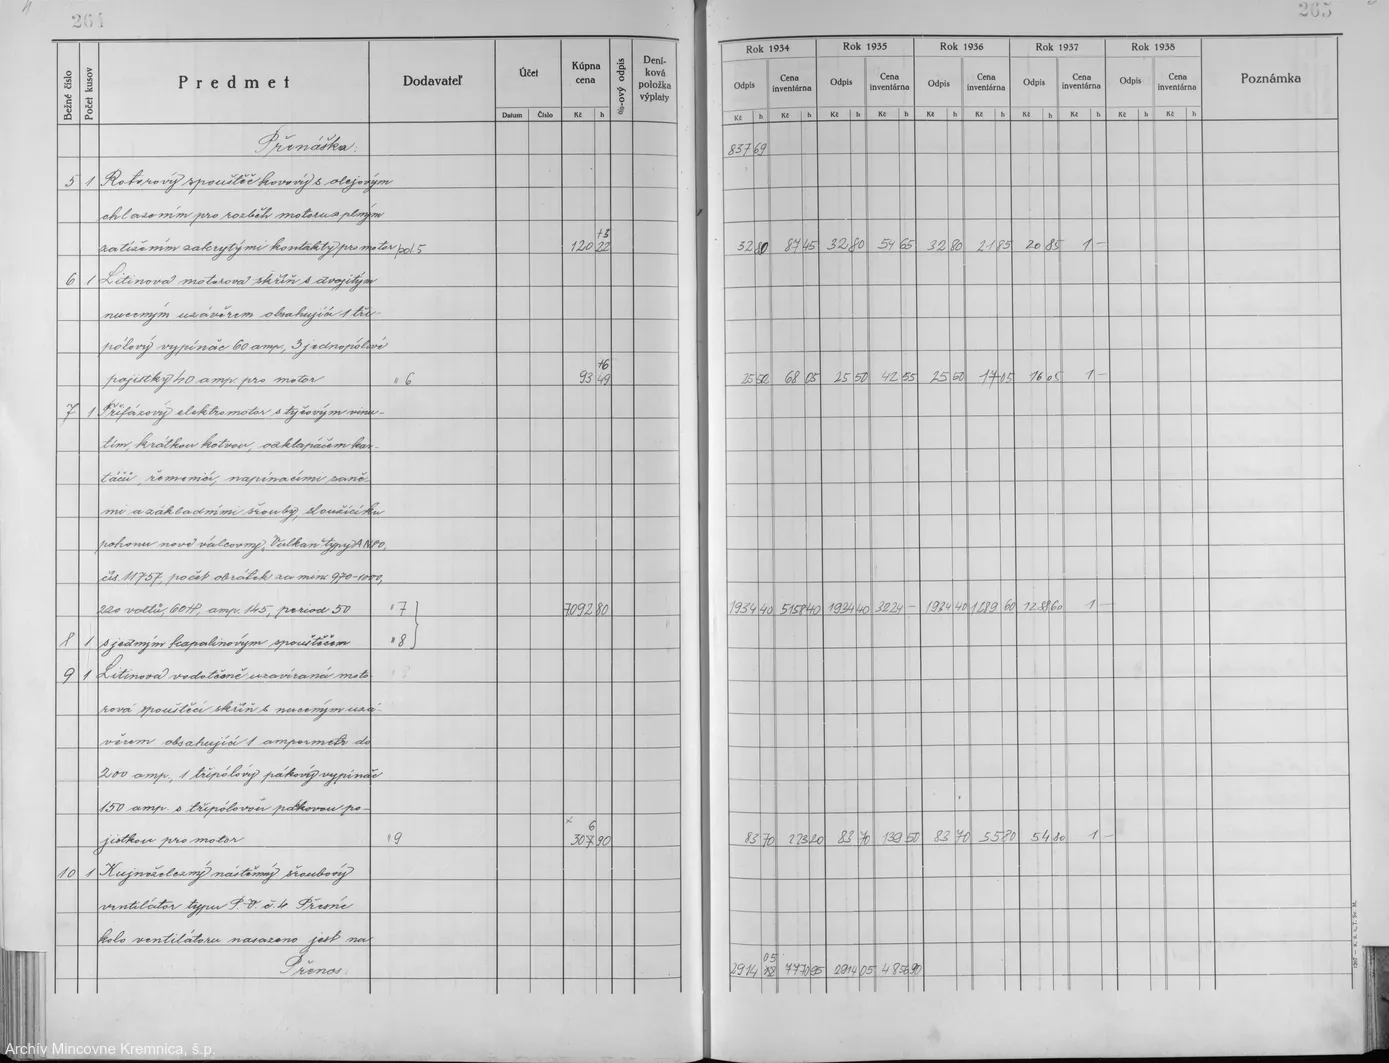 264
265
Bežné číslo
Počet kusov
Predmet
Dodavateľ
Účet
Datum
Číslo
Kúpna cena
Kč
h
%-ový odpis
Deníková položka výplaty
Rok 1934
Rok 1935
Rok 1936
Rok 1937
Rok 1938
Odpis Cena inventárna Odpis Cena inventárna Odpis Cena inventárna Odpis Cena inventárna Odpis Cena inventárna
Kč h Kč h Kč h Kč h Kč h Kč h Kč h Kč h Kč h Kč h
Poznámka
Přenáška: 837 69
5 1 Rotorový spouštěč kovový s olejovým
chlazením pro rozběh motoru s plným
zatížením zakrytými kontakty pro motor pol 5 120 22 32 80 87 45 32 80 54 65 32 80 21 85 20 85 1 –
6 1 Litinová motorová skříň s dvojitým
nuceným uzávěrem obsahující 1 tří-
pólový vypínač 60 amp, 3 jednopólové
pojistky 40 amp. pro motor " 6 93 49 25 50 68 05 25 50 42 55 25 50 17 05 16 05 1 –
7 1 Třífázový elektromotor s tyčovým vinu-
tím, krátkou kotvou, odklapáčem kar-
táčů, řemenicí, napínacími saně-
mi a základními šrouby, sloužící ku
pohonu nové válcovny, Vulkan typy ANPO,
čís. 11757, počet obrátek za min 970-1000,
220 voltů, 60 H, amp. 145, period 50 " 7 7092 80 1934 40 5158 40 1934 40 3224 – 1934 40 1289 60 1288 60 1 –
8 1 s jedným kapalinovým spouštěčem " 8
9 1 Litinová vodotěsně uzavíraná moto-
rová spouštěcí skříň s nuceným uzá-
věrem obsahující 1 ampermetr do
200 amp., 1 třípólový pákový vypínač
150 amp. s třípólovou pákovou po-
jistkou pro motor " 9 307 90 83 70 223 20 83 70 139 50 83 70 55 80 54 80 1 –
10 1 Kujnoželezný nástěnný šroubový
ventilátor typu P.V. č. 4 Přesné
kolo ventilátoru nasazeno jest na
Přenos: 2914 05 7770 95 2914 05 4856 90
Archív Mincovne Kremnica, š.p.